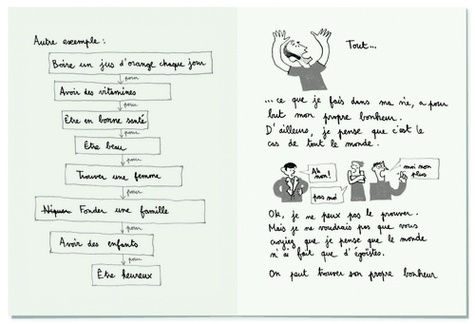 Autre exemple :
Boire un jus d'orange chaque jour
pour
Avoir des vitamines
pour
Être en bonne santé
pour
Être beau
pour
Trouver une femme
pour
Niquer Fonder une famille
pour
Avoir des enfants
pour
Être heureux
Tout...
...ce que je fais dans ma vie, a pour
but mon propre bonheur.
D'ailleurs, je pense que c'est le
cas de tout le monde.
Ah non !
pas moi
moi non plus
Ok, je ne peux pas le prouver.
Mais je ne voudrais pas que vous
croyiez que je pense que le monde
n'ai fait que d'égoïstes.
On peut trouver son propre bonheur